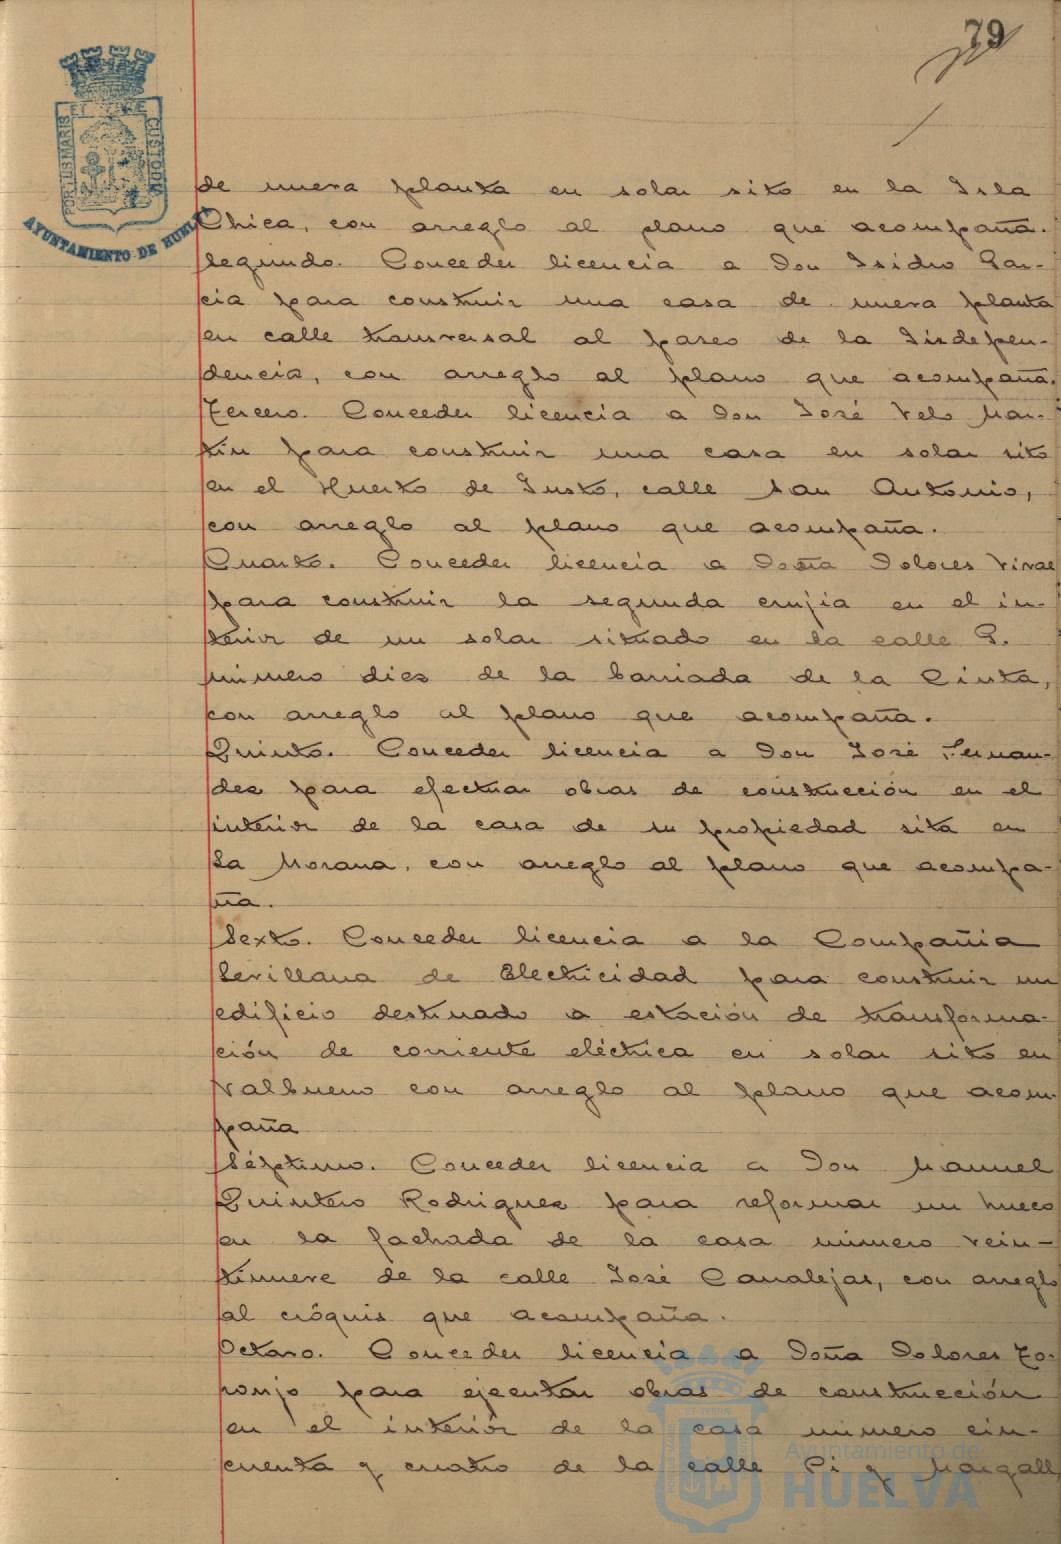 79
PORTUS MARIS ET TERRE CUSTODIA
AYUNTAMIENTO DE HUELVA
de nueva planta en solar sito en la Isla
Chica, con arreglo al plano que acompaña.
Segundo. Conceder licencia a Don Isidro Gar-
cia para construir una casa de nueva planta
en calle transversal al paseo de la Indepen-
dencia, con arreglo al plano que acompaña.
Tercero. Conceder licencia a Don José Velo Mar-
tin para construir una casa en solar sito
en el Huerto de Justo, calle San Antonio,
con arreglo al plano que acompaña.
Cuarto. Conceder licencia a Doña Dolores
para construir la segunda crujia en el in-
terior de un solar situado en la calle G.
número diez de la barriada de la Cinta,
con arreglo al plano que acompaña.
Quinto. Conceder licencia a Don José Fernan-
dez para efectuar obras de construcción en el
interior de la casa de su propiedad sita en
La Morana, con arreglo al plano que acompa-
ña.
Sexto. Conceder licencia a la Compañia
Sevillana de Electricidad para construir un
edificio destinado a estación de transforma-
ción de corriente eléctrica en solar sito en
Valbueno con arreglo al plano que acom-
paña
Séptimo. Conceder licencia a Don Manuel
Quintero Rodriguez para reformar un hueco
en la fachada de la casa número vein-
tinueve de la calle José Canalejas, con arreglo
al cróquis que acompaña.
Octavo. Conceder licencia a Doña Dolores To-
ronjo para ejecutar obras de construcción
en el interior de la casa número cin-
cuenta y cuatro de la calle Pi y Margall
Ayuntamiento de
HUELVA